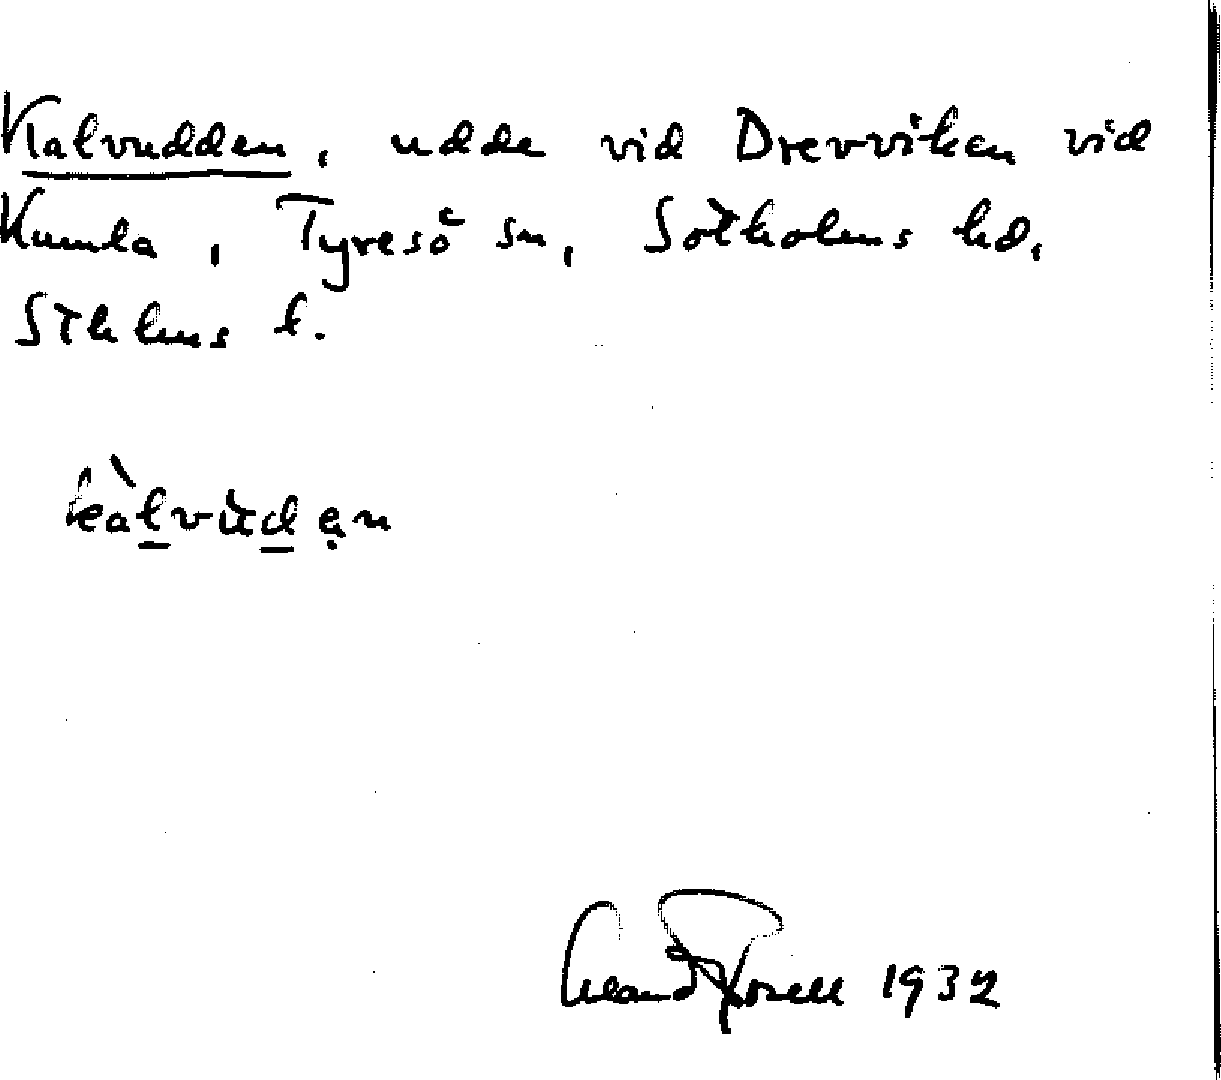 Kalvudden, udde vid Drevviken vid
Kumla, Tyresö sn, Sotholms hd,
Sthlms l.
kàlvùdạn
1932